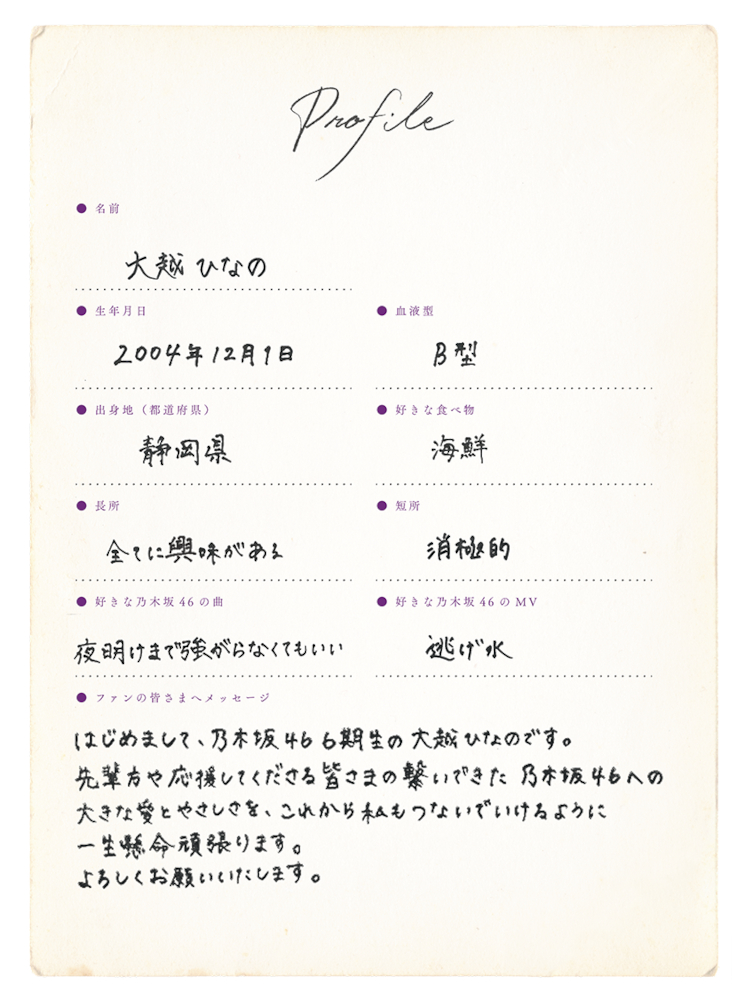 Profile
● 名前
大越 ひなの
● 生年月日
● 血液型
2004年12月1日
B型
● 出身地（都道府県）
● 好きな食べ物
静岡県
海鮮
● 長所
● 短所
全てに興味がある
消極的
● 好きな乃木坂46の曲
● 好きな乃木坂46のMV
夜明けまで強がらなくてもいい
逃げ水
● ファンの皆さまへメッセージ
はじめまして、乃木坂46 6期生の大越ひなのです。
先輩方や応援してくださる皆さまの繋いできた乃木坂46への
大きな愛とやさしさを、これから私もつないでいけるように
一生懸命頑張ります。
よろしくお願いいたします。